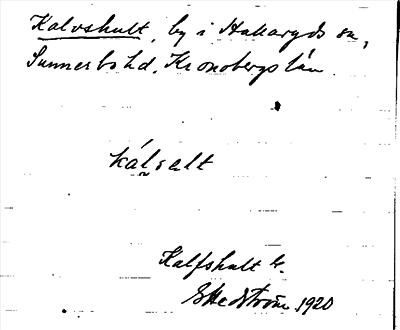 Kalvshult, by i Hallaryds sn,
Sunnerbo hd, Kronobergs län.
kálsalt
Kalfshult Gr.
Hedström 1920